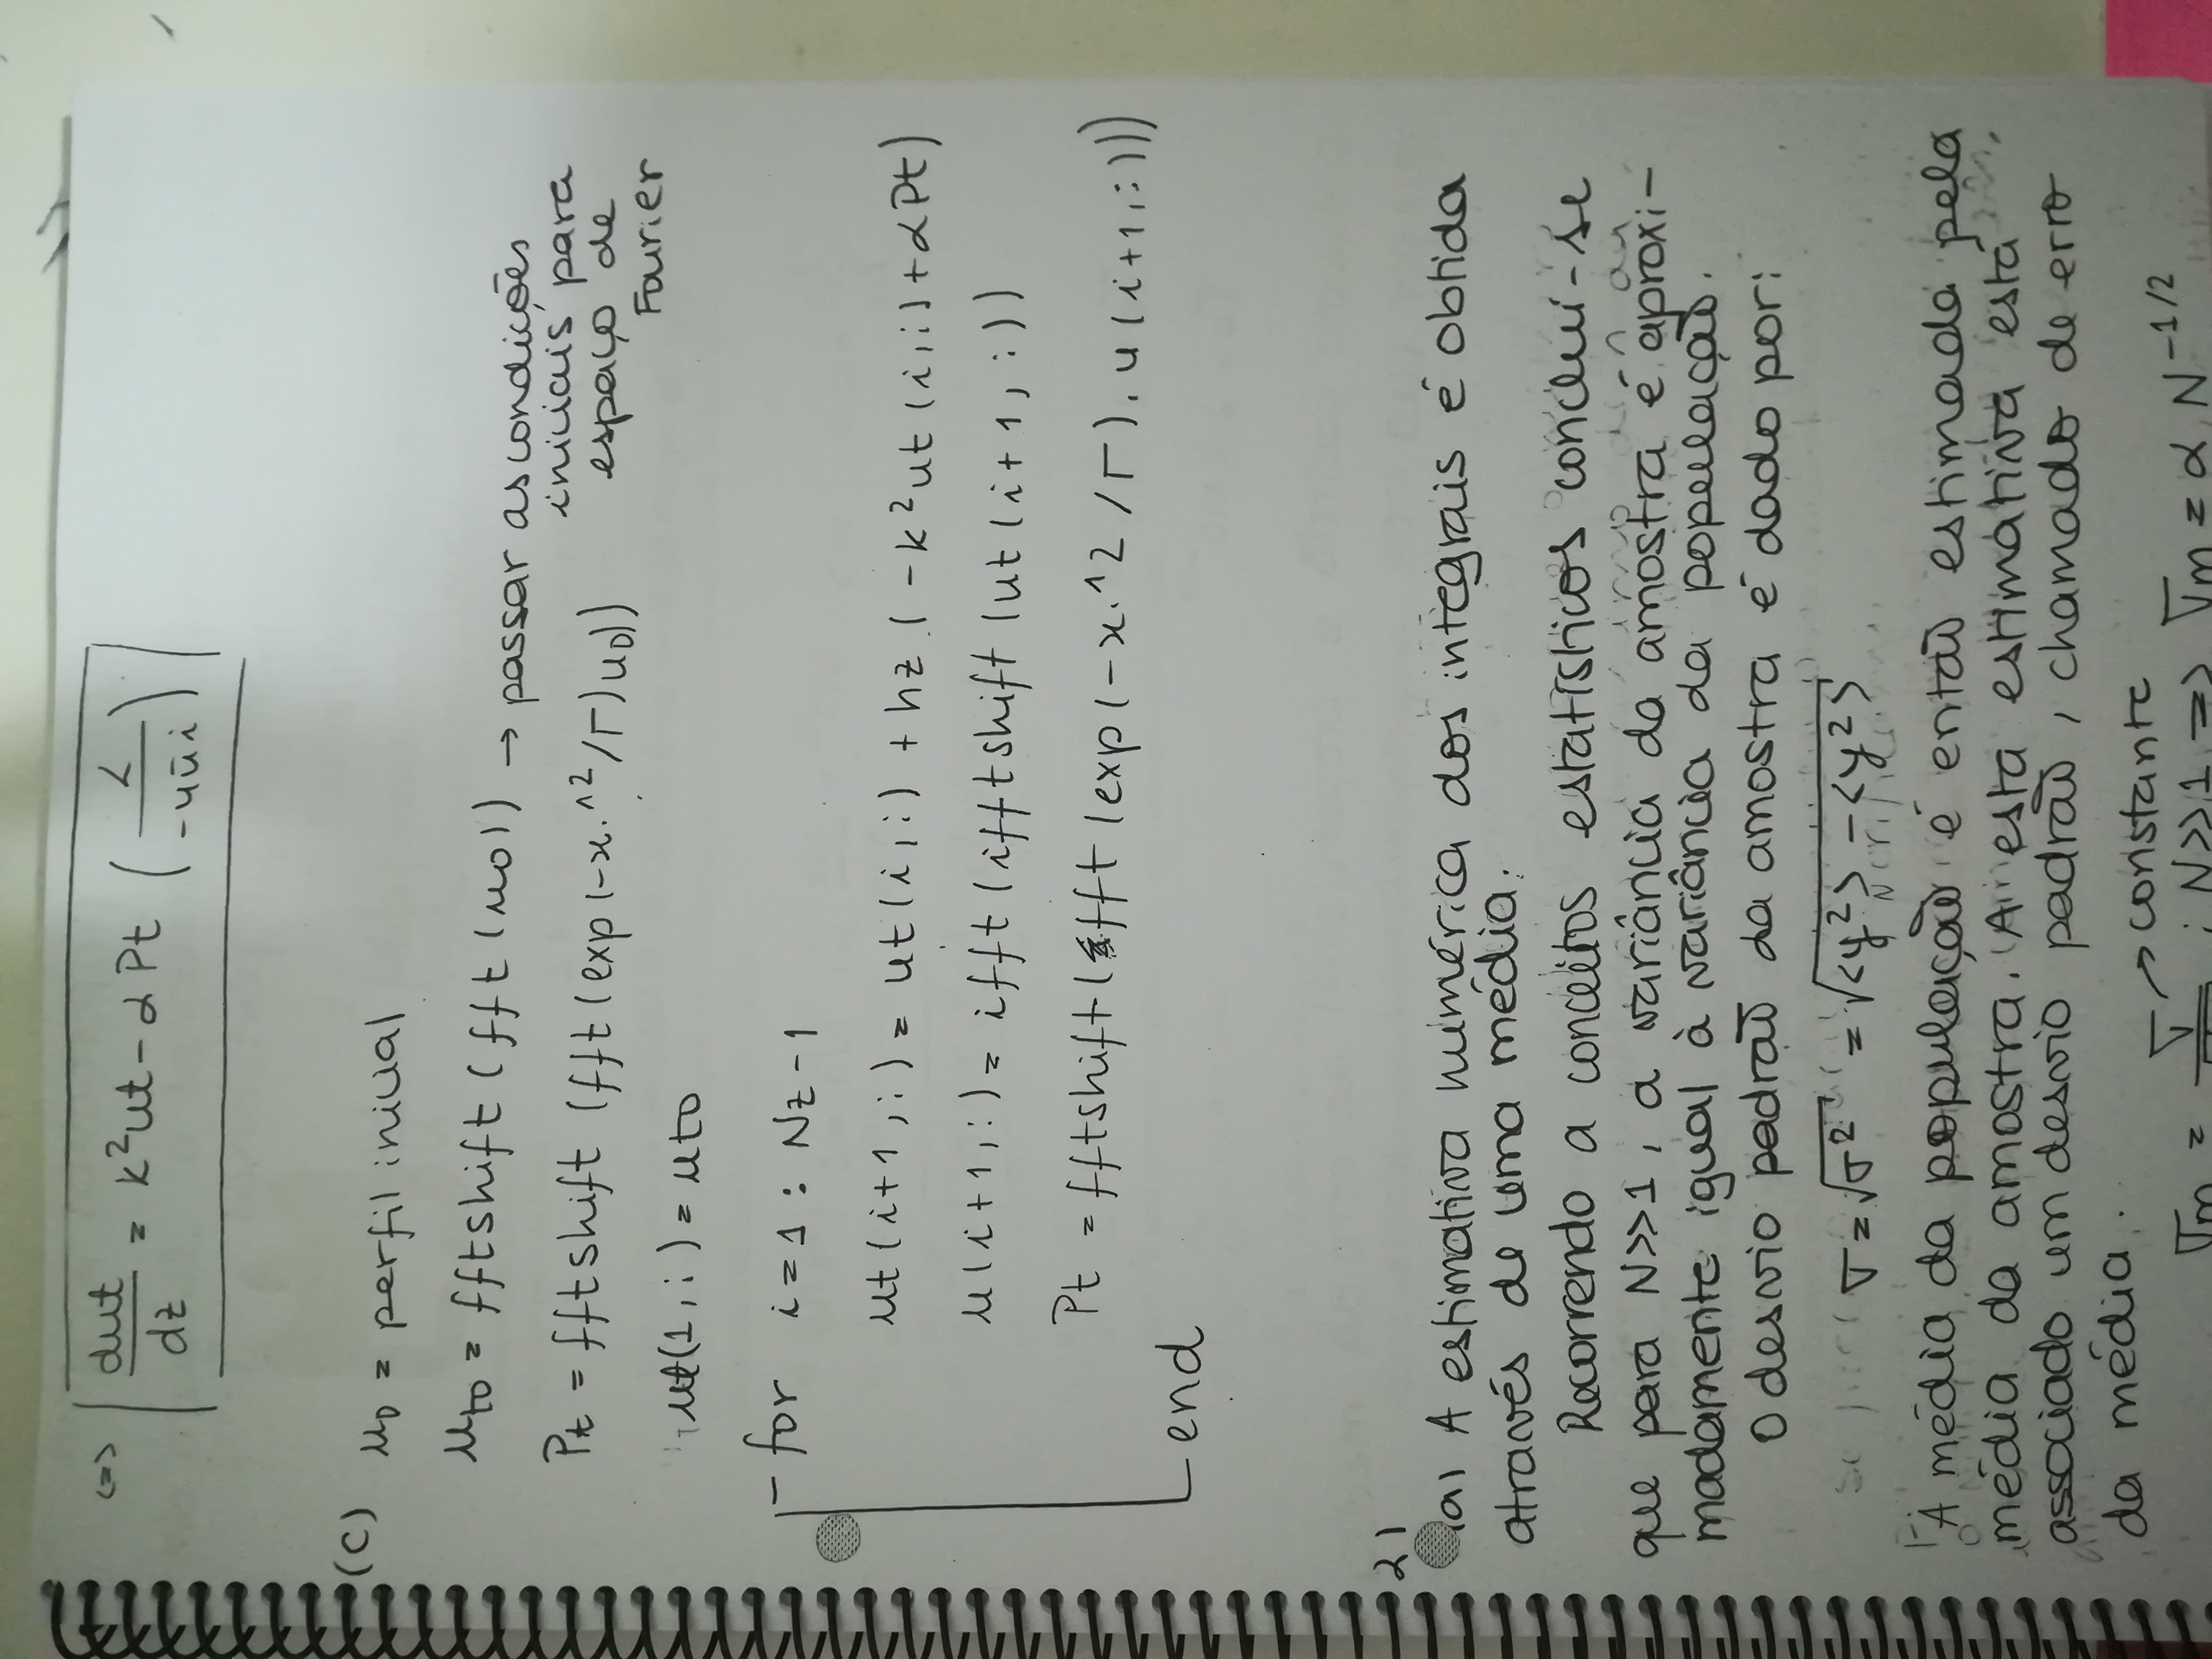 <=> dut/dz = k²ut - αPt (α/-4ūi)
(c) u0 = perfil inicial
ut0 = fftshift (fft (u0)) → passar as condições
iniciais para
espaço de
Fourier
Pt = fftshift (fft (exp (-x.^2/Γ) u0))
ut(1,:) = ut0
for i=1 : Nz-1
ut (i+1,:) = ut (i,:) + hz (-k²ut (i,:) + αPt)
u (i+1,:) = ifft (ifftshift (ut (i+1,:))
Pt = fftshift (fft (exp (-x.^2/Γ). u (i+1,:)))
end
2)
(a) A estimativa numérica dos integrais é obtida
através de uma média.
Recorrendo a conceitos estatísticos conclui-se
que para N>>1, a variância da amostra é aproxi-
madamente igual à variância da população.
O desvio padrão da amostra é dado por:
σ = √σ² = √<y²> - <y²>
A média da população é então estimada pela
média da amostra. A esta estimativa está
associado um desvio padrão, chamado de erro
da média.
σm = σ/√ → constante ; N>>1 => σm = α N^-1/2